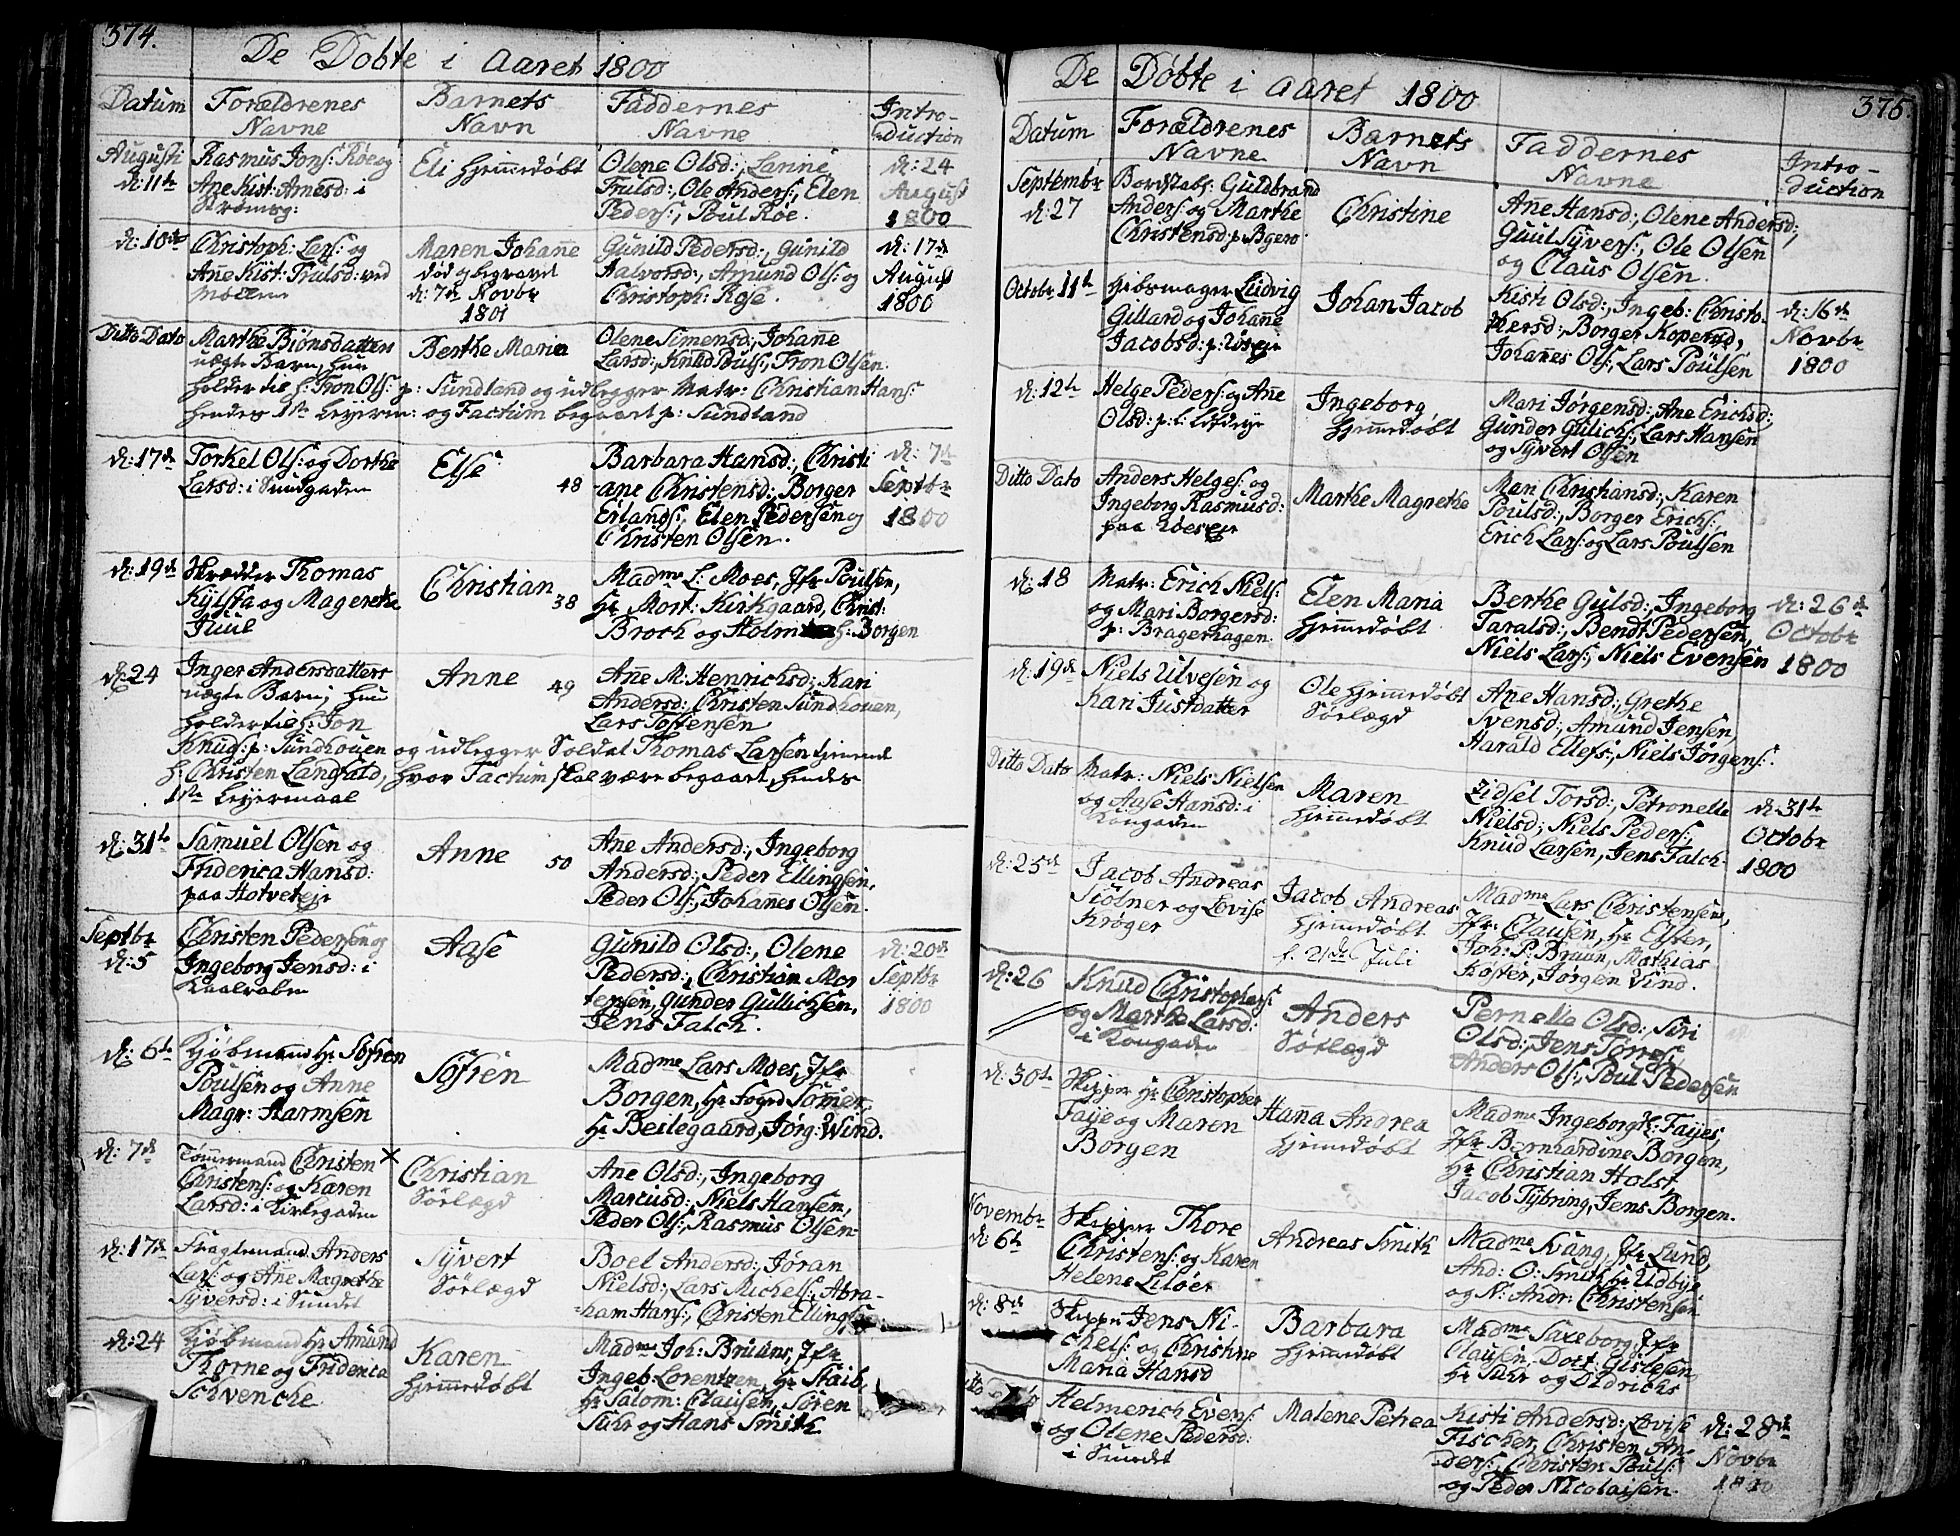 374.
De Døbte i Aaret 1800
Datum Forældrenes Navne Barnets Navn Faddernes Navne Intro-duction
Augusti d: 11te
Rasmus Jons: Røe og
Ane Kist: Amesd: i
Strømsg:
Eli Hjemmedøbt
Olene Olsd:, Lanne
Trulsd:, Ole Anders:, Elen
Peders:, Poul Røe.
d: 24
August
1800
d: 10de
Christoph: Lars: og
Ane Kist: Trulsd: ved
Møllen
Maren Johanne
død og begravet
d: 7de Novbr
1801
Gunild Pedersd:, Gunild
Halvorsd:, Amund Ols: og
Christoph: Rose.
d: 17de
August
1800
Ditto Dato
Marthe Biønsdatters
uægte Barn, hun
Berthe Maria
Olene Simensd:, Johanne
Larsd:, Knud Pouls:, Tron Olsen.
holder til h: Tron Ols: p: Sundland og udlegger Matr: Christian Hans:
hendes 1te Leyerm: og Factum begaaet p: Sundland
d: 17de
Torkel Ols: og Dorthe
Larsd: i Sundgaden
Else
48
Barbara Hansd:, Christi
ane Christensd:, Borger
Erlands:, Elen Pedersen og
Christen Olsen.
d: 7de
Septbr
1800
d: 19de
Skrædder Thomas
Kylsta og Magerethe
Juul
Christian
38
Madme L: Moes, Jfr Poulsen,
Hr Mort: Kirkgaard, Christ:
Broch og Holm h: Borgen
d: 24
Inger Andersdatters
uægte Barn; hun
holder til h: Jon
Anne
49
Ane M: Henrichsd:, Kari
Andersd:, Christen Sundhouen,
Lars Tostensen
Knuds: p: Sundhouen og udlegger Soldat Thomas Larsen tienende
h: Christen Langfald, hvor Factum skal være begaaet, hendes
1te Leyermaal
d: 31te
Samuel Olsen og
Friderica Hansd:
paa Hotvetejr
Anne
50
Ane Andersd:, Ingeborg
Andersd:, Peder Ellingsen,
Peder Ols:, Johannes Olsen.
Septbr
d: 5
Christen Pedersen og
Ingeborg Jensd: i
Aase
Gunild Olsd:, Olene
Pedersd:, Christian Mor
tensen, Gunder Gullichsen,
Jens Falch.
d: 20de
Septbr
1800
d: 6te
Kjøbmand Hr Søfren
Poulsen og Anne
Magr: Harmsen
Søfren
Madme Lars Moes, Jfr
Borgen, Hr Foged Sømer,
Hr Beilegaard, Jørg: Wind.
d: 7de
Tømmermand Christen
Christens: og Karen
Larsd: i Kirkegaden
Christian
Sørlægd
Ane Olsd:, Ingeborg
Marcusd:, Niels Hansen,
Peder Ols:, Rasmus Olsen
d: 17de
Fragtemand Anders
Lars: og Ane Magrethe
Syversd: i Sundet
Syvert
Sørlægd
Boel Andersd:, Jøran
Nielsd:, Lars Michels:, Abra-
ham Hans:, Christen Ellings:
d: 24
Kjøbmand Hr Amund
Thorne og Friderica
Schvencke
Karen
Hjemmedøbt
Madme Joh: Bruuns, Jfr
Ingeb: Lorentzen, Hr Staib,
Hr Salom: Clausen, Søren
Suhr og Hans Smith
375.
De Døbte i Aaret 1800
Datum Forældrenes Navne Barnets Navn Faddernes Navne Intro-duction
Septembr
d: 27
Bordstabs: Guldbrand
Anders: og Marthe
Christensd: p: Bgero
Christine
Ane Hansd:, Olene Andersd:,
Guul Syvers:, Ole Olsen
og Claus Olsen.
Octobr 11te
Gibsmager Ludvig
Gillard og Johanne
Jacobsd: p:
Johan Jacob
Kisti Olsd:, Ingeb: Christo-
phersd:, Borger Koperud,
Johannes Ols:, Lars Poulsen
d: 16de
Novbr
1800
d: 12te
Helge Peders: og Ane
Olsd: p:
Ingeborg
Hjemmedøbt
Mari Jørgensd:, Ane Erichsd:,
Gunder Gulichs:, Lars Hansen
og Syvert Olsen
Ditto Dato
Anders Helges: og
Ingeborg Rasmusd:
paa
Marthe Magrethe
Mari Christiansd:, Karen
Poulsd:, Borger Erichs:,
Erich Lars: og Lars Poulsen
d: 18
Matr: Erich Niels:
og Mari Borgersd:
p: Bragerhagen
Elen Maria
Hjemmedøbt
Berthe Gulsd:, Ingeborg
Taralsd:, Bendt Pedersen,
Niels Lars:, Niels Evensen
d: 26de
Octobr
1800
d: 19de
Niels Ulvesen og
Kari Justdatter
Ole Hjemmedøbt
Sørlægd
Ane Hansd:, Grethe
Svensd:, Amund Jensen,
Harald Ellefs:, Niels Jørgens:
Ditto Dato
Matr: Niels Nielsen
og Aase Hansd: i
Kongaden
Maren
Hjemmedøbt
Zidsel Torsd:, Petronelle
Nielsd:, Niels Peders:,
Knud Larsen, Jens Falch
d: 31te
Octobr
1800
d: 25de
Jacob Andreas
Siølner og Lovise
Krøger
Jacob Andreas
Hjemmedøbt
f. 21de Juli
Madme Lars Christensen,
Jfr: Clausen, Hr Elster,
Joh: P: Braun, Mathias
Køster, Jørgen Vind.
d: 26
Knud Christophers:
og Marthe Larsd:
i Kongaden
Anders
Sørlægd
Pernelle Olsd:, Siri
Olsd:, Jens Torres:
Anders Ols:, Poul Pedersen
d: 30te
Skipper Hr Christopher
Faye og Maren
Borgen
Hanna Andrea
Hjemmedøbt
Madme Ingeborg K: Fayes,
Jfr Bernhardine Borgen,
Hr Christian Holst
Jacob Tybring, Jens Borgen.
Novembr
d: 6te
Skipper Thore
Christens: og Karen
Helene Liløer
Andreas Smith
Madme Svang, Jfr Lund,
And: O: Smith, Hr Udbye
og N: Andr: Christensen
d: 8de
Skipper Jens Ni-
chels: og Christine
Maria Hansd
Barbara
Hjemmedøbt
Madme Saxeborg, Jfr
Clausen, Dort: Gislesen,
Hr Suhr og Didrichs
Helmerich Evens:
og Olene Pedersd:
i Sundet
Malene Petrea
Kisti Andersd:, Lovise
Fischer, Christen An-
ders:, Christen Pouls:
og Peder Nicolaisen.
d: 28de
Novbr
1800